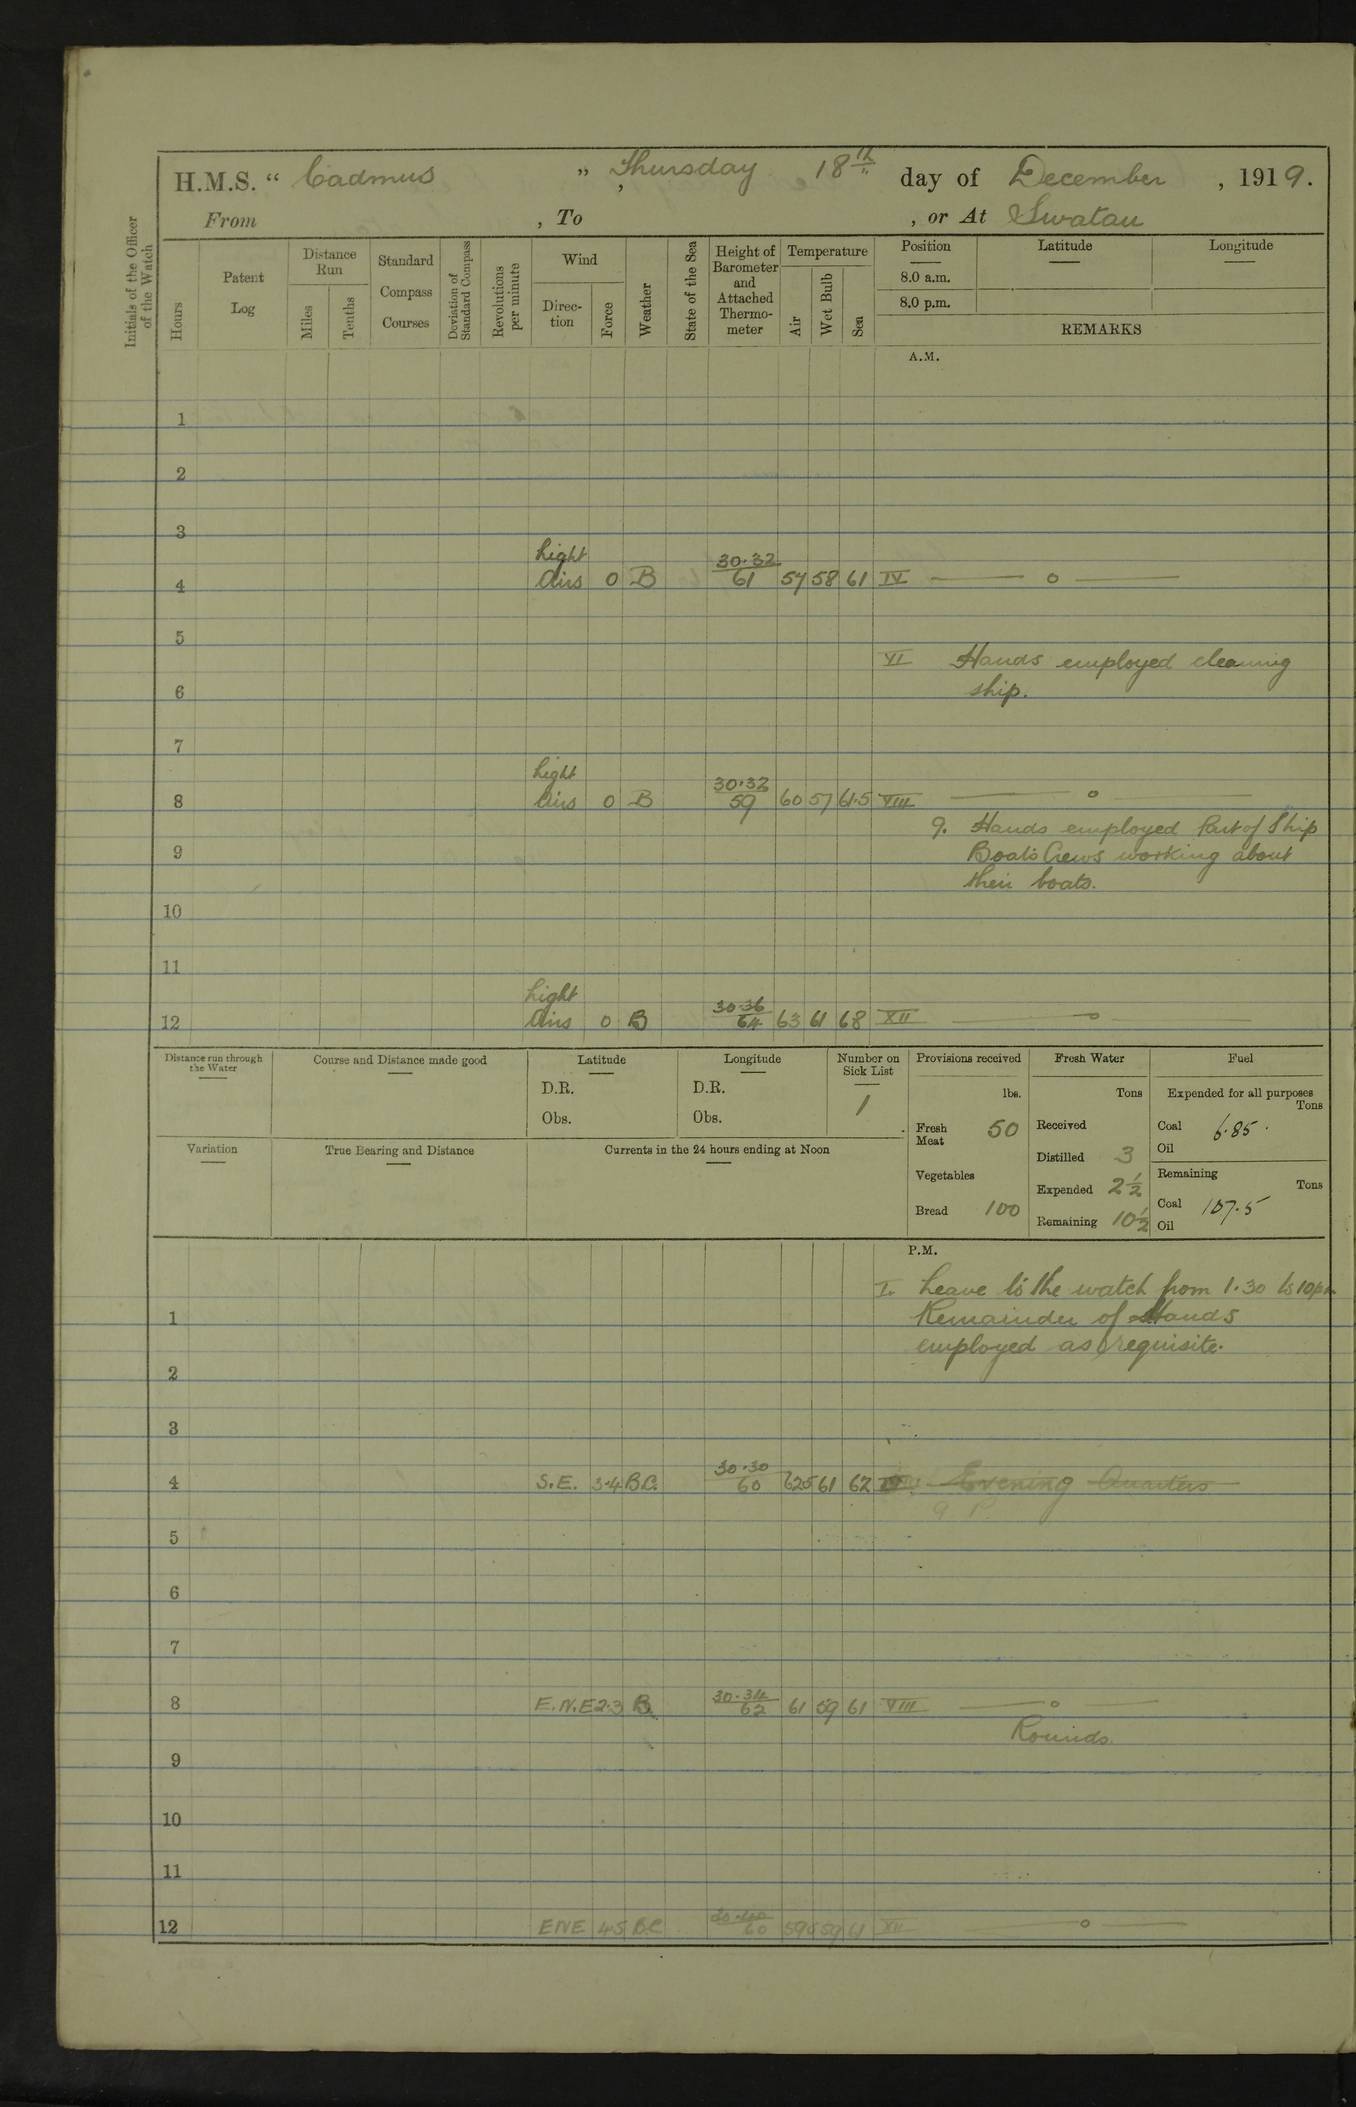 H.M.S. " Cadmus " Thursday 18th day of December, 1919.
From , To , or At Swatau
Initials of the Officer of the Watch
Hours
Patent Log
Distance Run
Miles
Tenths
Standard Compass Courses
Deviation of Standard Compass
Revolutions per minute
Wind
Direction
Force
Weather
State of the Sea
Height of Barometer and Attached Thermometer
Temperature
Air
Wet Bulb
Sea
Position Latitude Longitude
8.0 a.m.
8.0 p.m.
REMARKS
A.M.
1
2
3
Light 30.32
4 Airs 0 B 61 57 58 61 IV — o —
5
VI Hands employed cleaning
6 ship.
7
Light 30.32
8 Airs 0 B 59 60 57 61.5 VIII — o —
9. Hands employed Part of Ship
9 Boat's Crews working about
their boats.
10
11
Light 30.36
12 Airs 0 B 64 63 61 68 XII — o —
Distance run through the Water
Course and Distance made good
Latitude
D.R.
Obs.
Longitude
D.R.
Obs.
Number on Sick List
1
Provisions received
lbs.
Fresh Meat 50
Vegetables
Bread 100
Fresh Water
Tons
Received
Distilled 3
Expended 2½
Remaining 10½
Fuel
Expended for all purposes
Tons
Coal 6.85.
Oil
Remaining
Tons
Coal 107.5
Oil
Variation
True Bearing and Distance
Currents in the 24 hours ending at Noon
P.M.
I. Leave to the watch from 1.30 to 10pm
1 Remainder of Hands
employed as requisite.
2
3
30.30
4 S.E. 3.4 B.C. 60 62.5 61 62 Evening Quarters
5
6
7
30.34
8 E.N.E 2.3 B. 62 61 59 61 VIII — o —
Rounds.
9
10
11
30.40
12 ENE 4.5 B.C 60 59.5 59 61 XII — o —